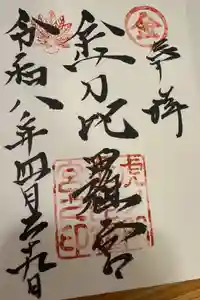 奉拝
金
金刀比羅宮
令和八年四月二十九日